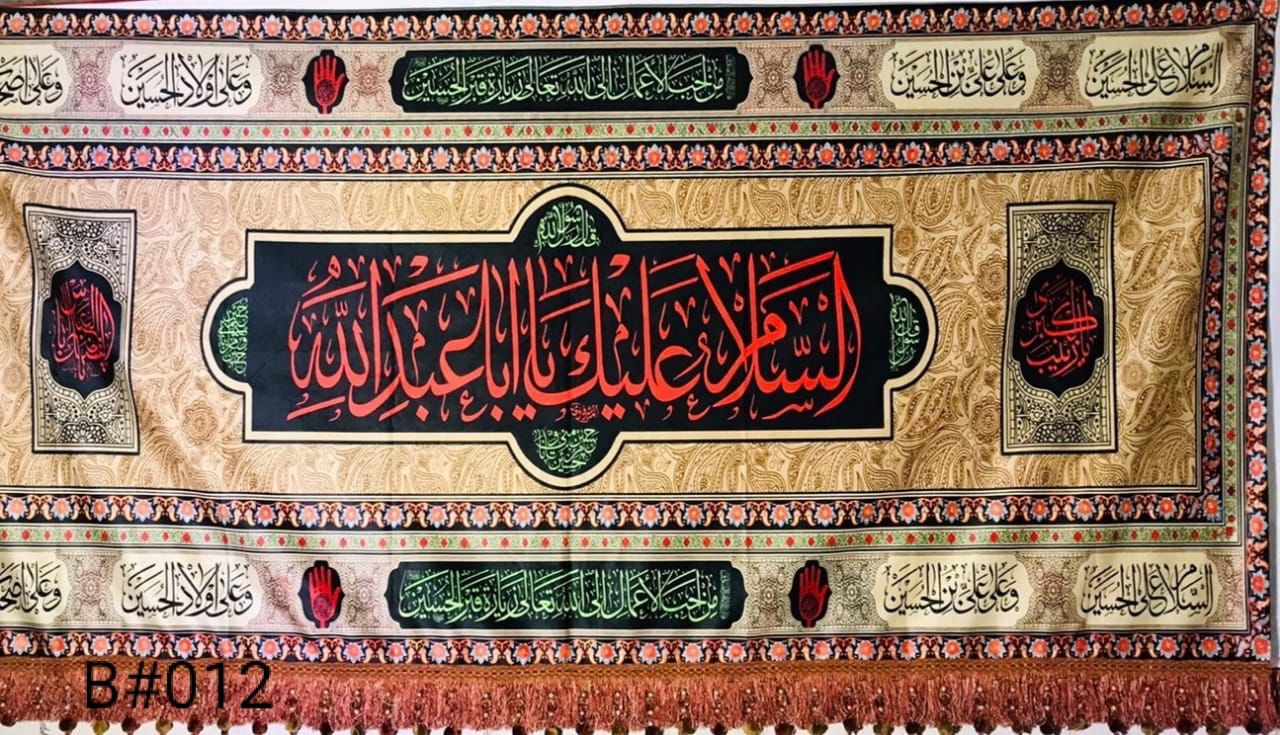 السلام على الحسين
وعلى علي بن الحسين
من احب الاعمال الى الله تعالى زيارة قبر الحسين
وعلى اولاد الحسين
وعلى اصحا
قال رسول الله
السلام عليك يا اباعبدالله
قال رسول الله
حسين مني وانا من حسين
يا زينب الكبرى
السلام على الحسين
وعلى علي بن الحسين
من احب الاعمال الى الله تعالى زيارة قبر الحسين
وعلى اولاد الحسين
وعلى اصحا
B#012